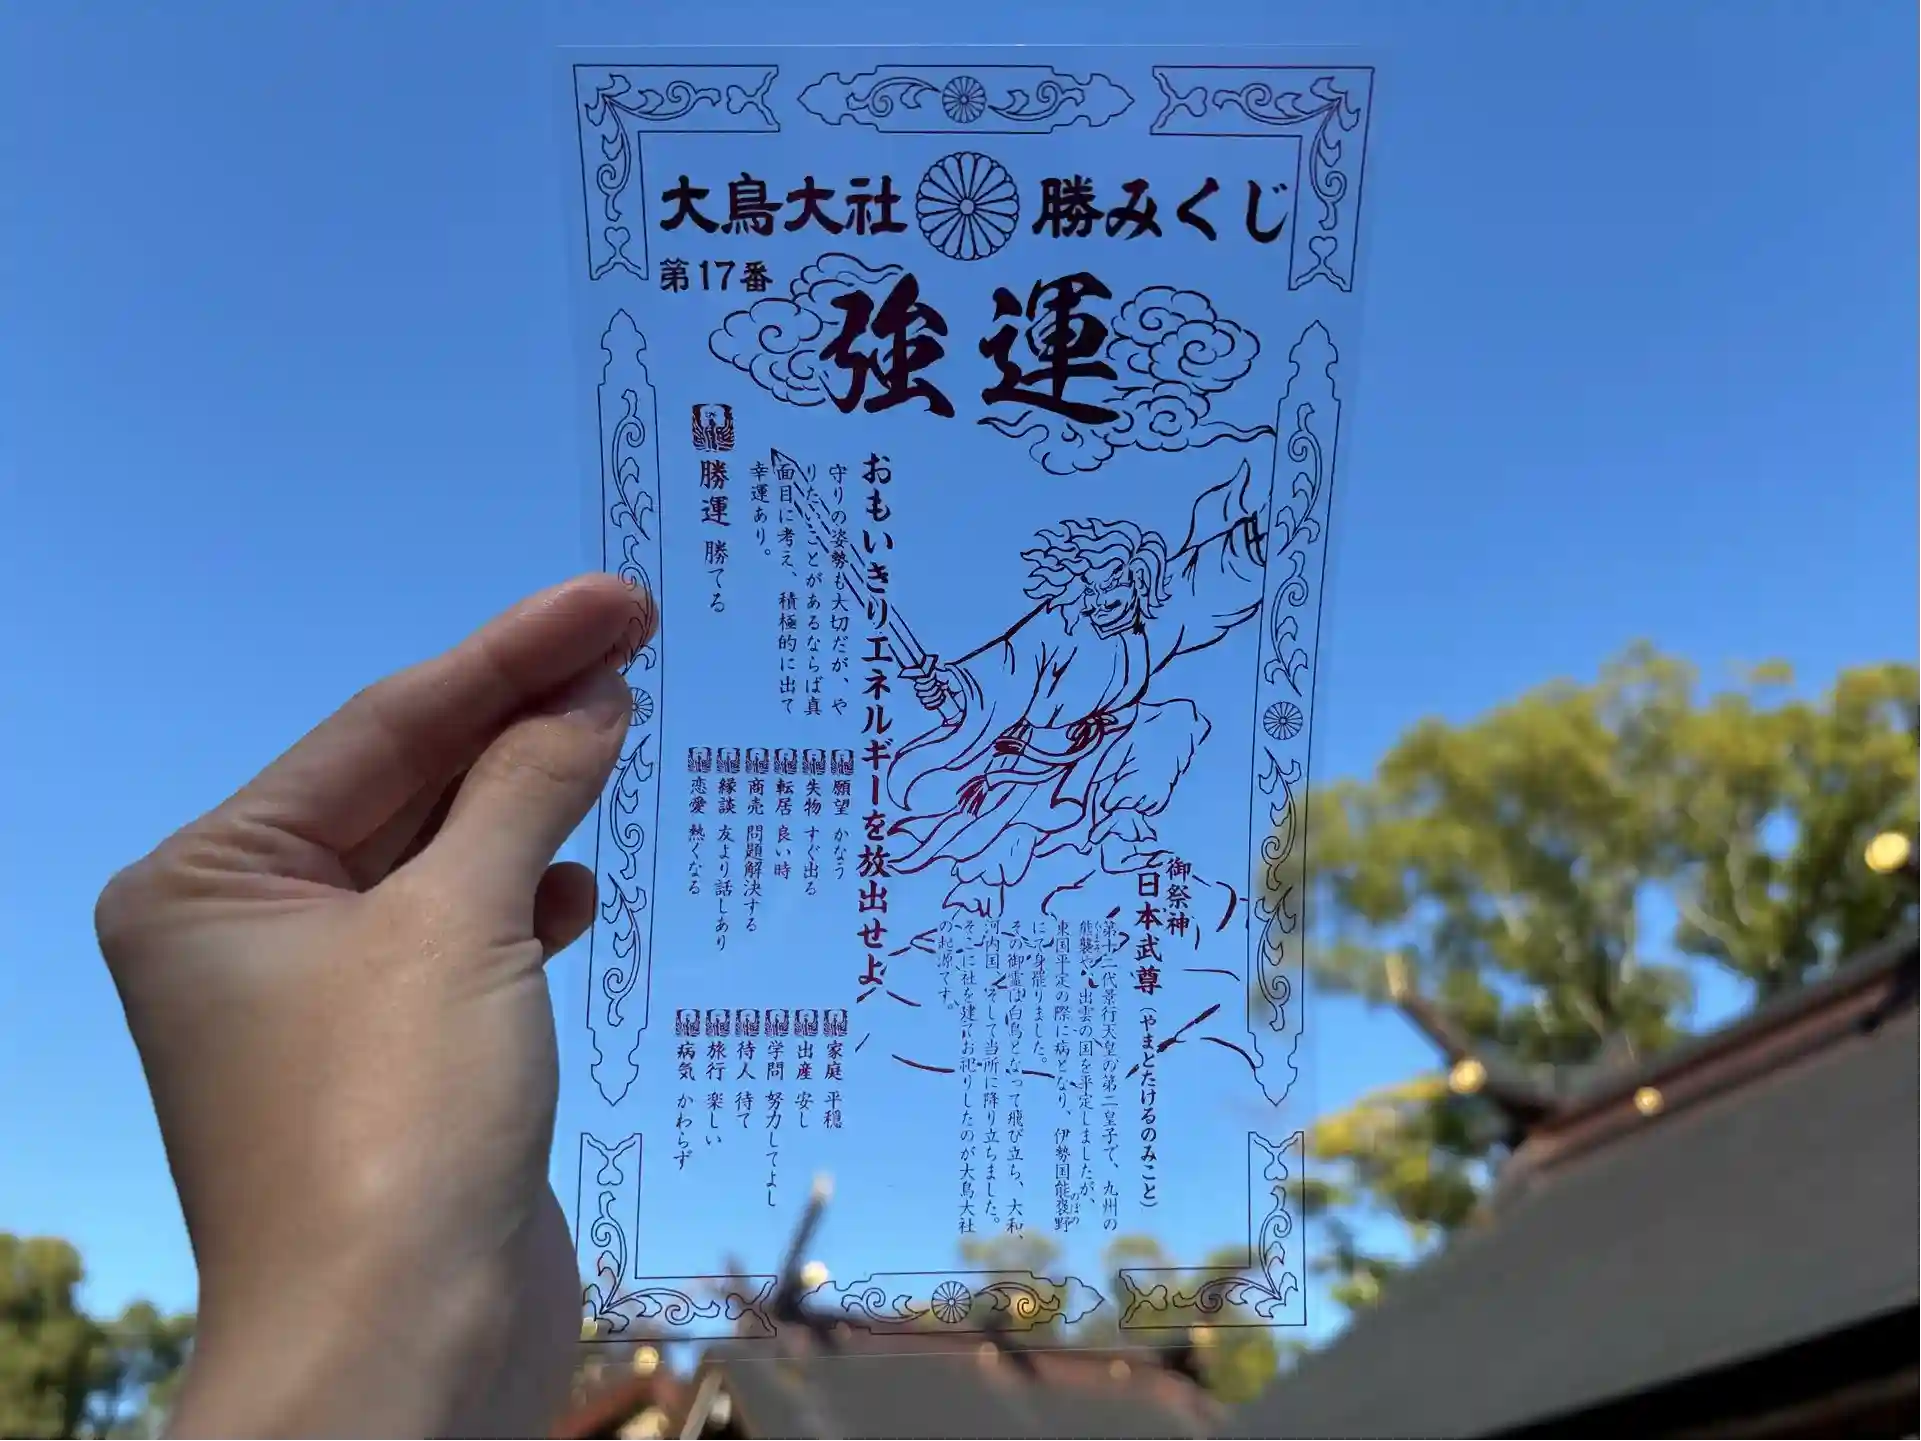 大鳥大社 勝みくじ
第17番
強運
おもいきりエネルギーを放出せよ
守りの姿勢も大切だが、や
りたいことがあるならば真
面目に考え、積極的に出て
幸運あり。
勝運 勝てる
願望 かなう
失物 すぐ出る
転居 良い時
商売 問題解決する
縁談 友より話しあり
恋愛 熱くなる
家庭 平穏
出産 安し
学問 努力してよし
待人 待て
旅行 楽しい
病気 かわらず
御祭神
日本武尊(やまとたけるのみこと)
第十二代景行天皇の第二皇子で、九州の
熊襲や、出雲の国を平定しましたが、
東国平定の際に病となり、伊勢国能褒野
のぼの
にて身罷りました。
その御霊は白鳥となって飛び立ち、大和、
河内国、そして当所に降り立ちました。
そこに社を建てお祀りしたのが大鳥大社
の起源です。